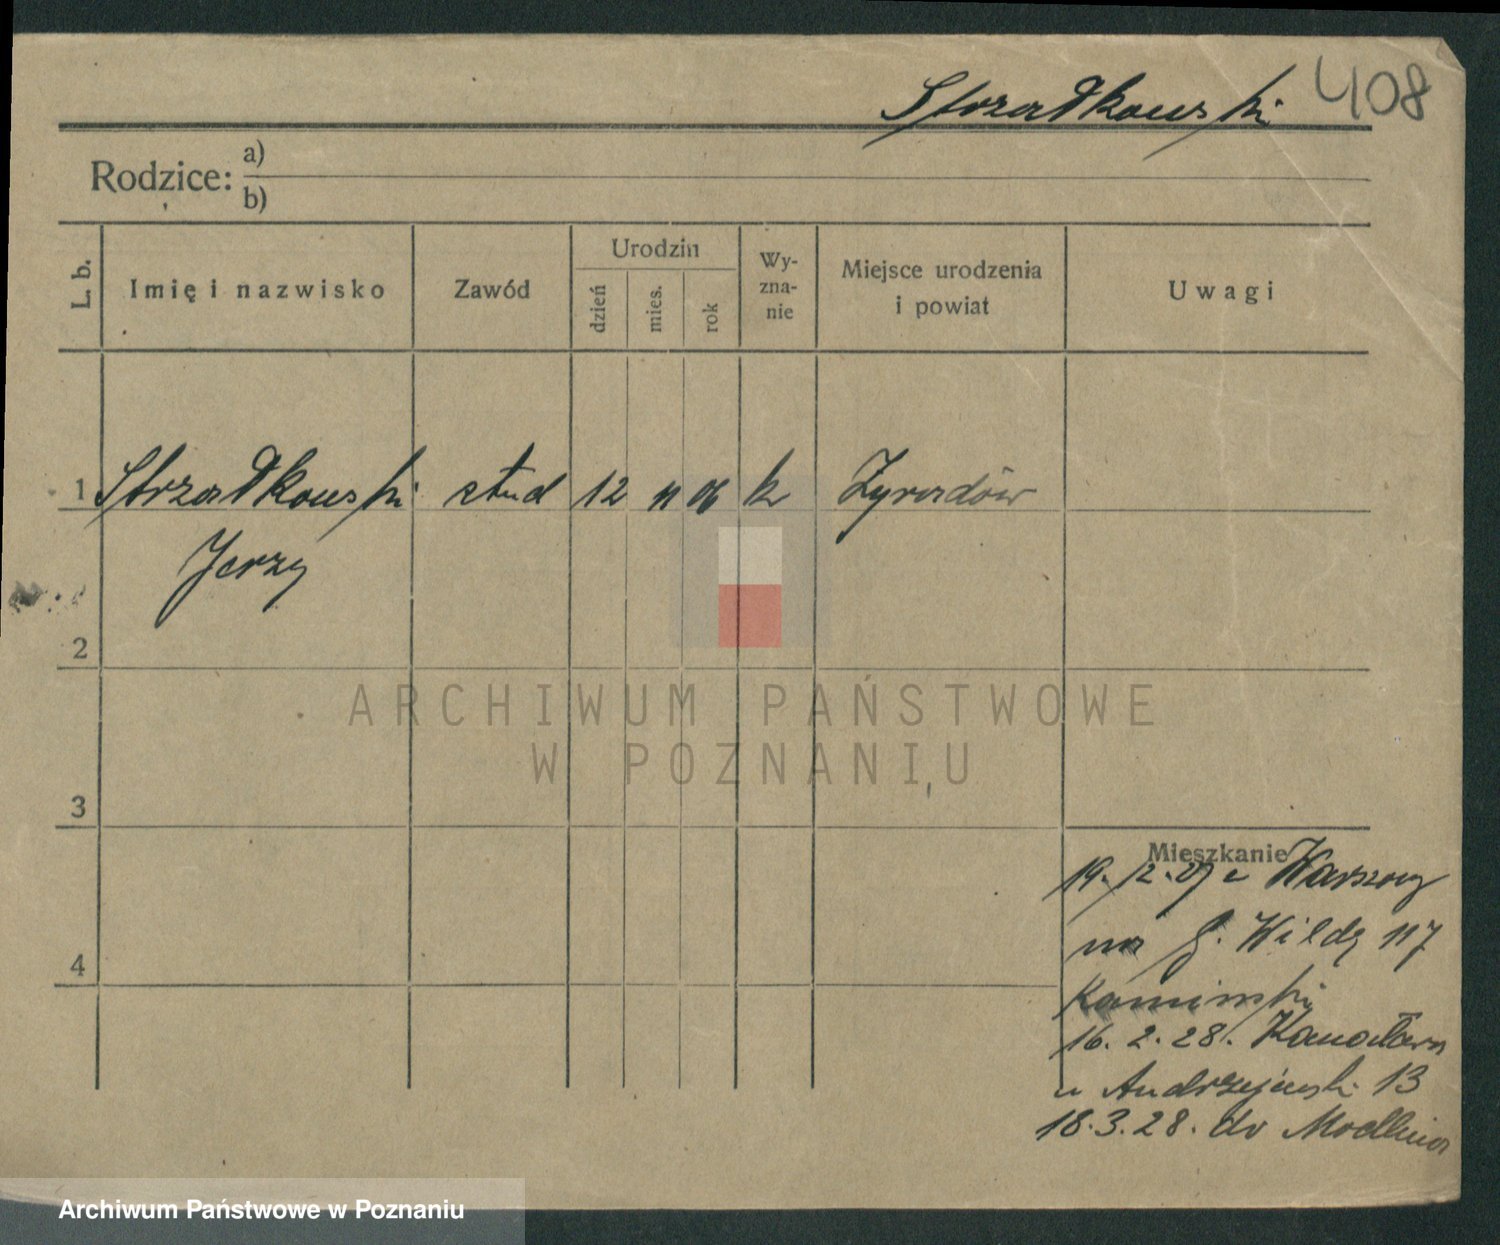 Strzałkowski 408
Rodzice: a)
b)
L. b. Imię i nazwisko Zawód Urodzin dzień mies. rok Wy-zna-nie Miejsce urodzenia i powiat Uwagi
1 Strzałkowski stud 12 11 06 k Żyrardów
Jerzy
2
ARCHIWUM PAŃSTWOWE
W POZNANIU
3
Mieszkanie
19. 12. 27 z Warszawy
na G. Wildę 117
Kamiński
4
16. 2. 28.
u Andrzejewski 13
18. 3. 28. do Modlina
Archiwum Państwowe w Poznaniu